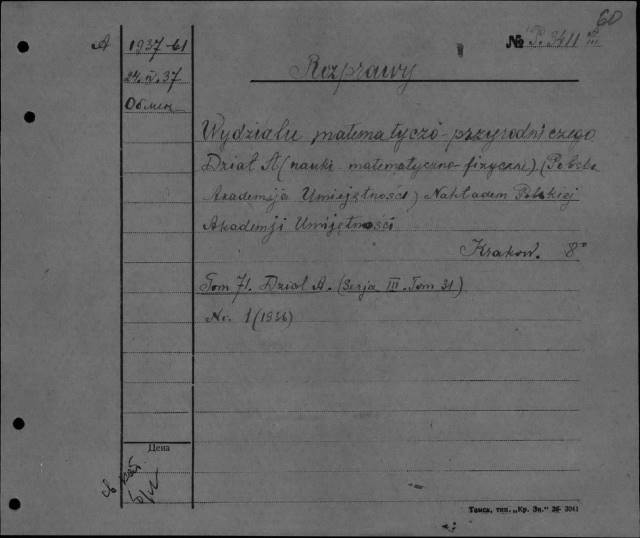 60
A 1937-61 № P. 3411 III
24.IV.37 Rozprawy
Обмен
Wydzialu matematyczo-przyrodniczego
Dział A (nauki matematyczno-fizyczne) (Polska
Akademija Umiejętności) Nakładem Polskiej
Akademji Umijętności
Krakow. 8°
Tom 71. Dzial A. (Serja III. Tom 31)
Nr. 1 (1936)
Цена
Томск, тип. „Кр. Зн." 36 3041